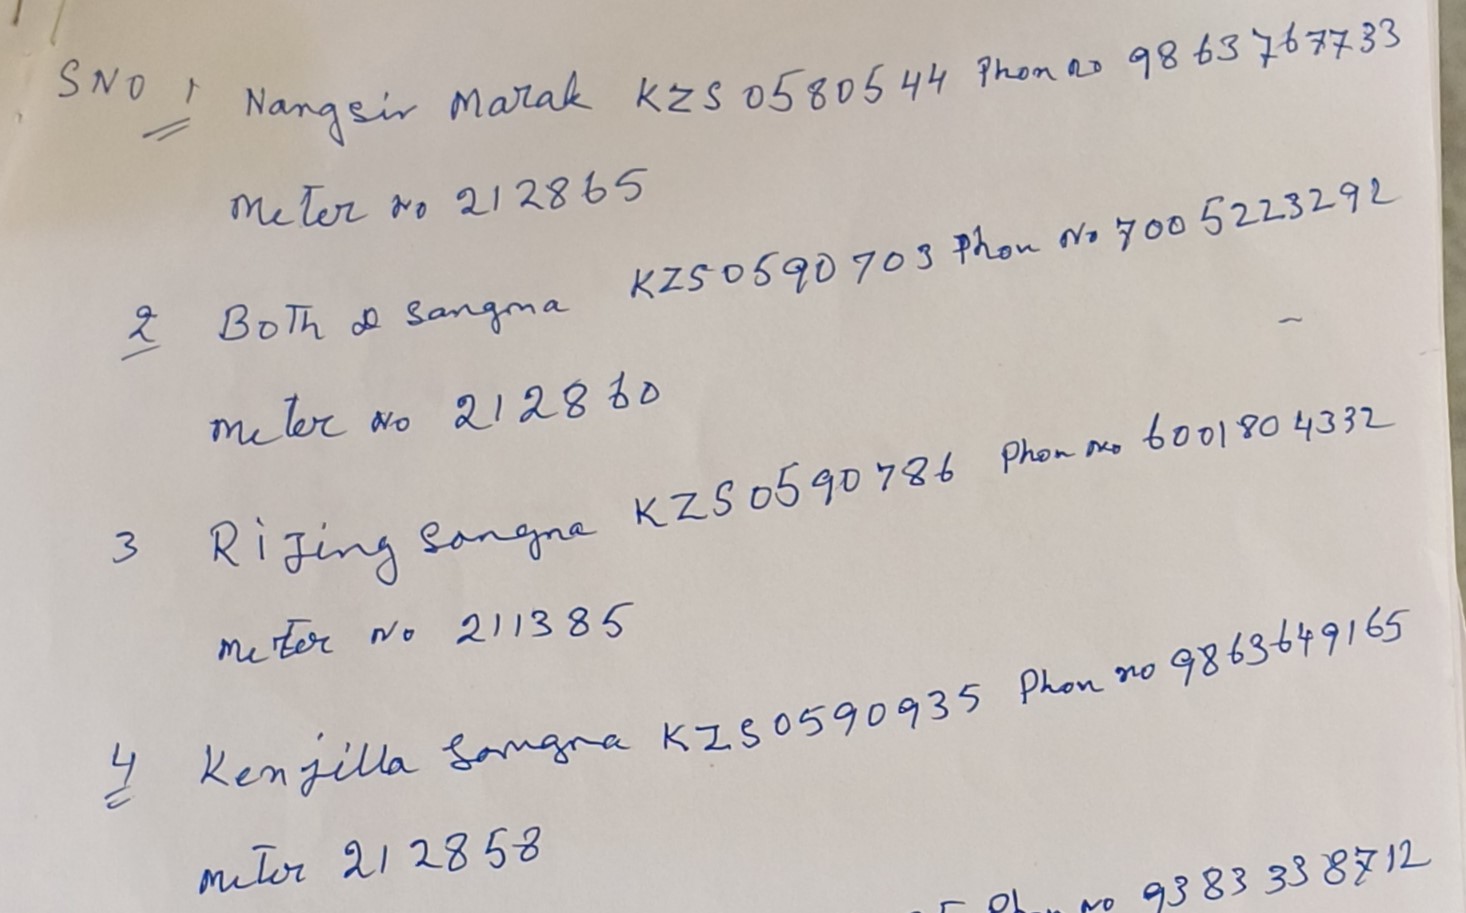 SNO 1 Nangsir Marak KZS 0580544 Phon no 9863767733
Meter No 212865
2 BoTh Sangma KZS0590703 Phon No 7005223292
meter No 212860
3 RiJing Sangna KZS0590786 Phon no 6001804332
meter No 211385
4 Kenjilla Sangna KZS0590935 Phon no 9863649165
meter 212858
No 9383338712